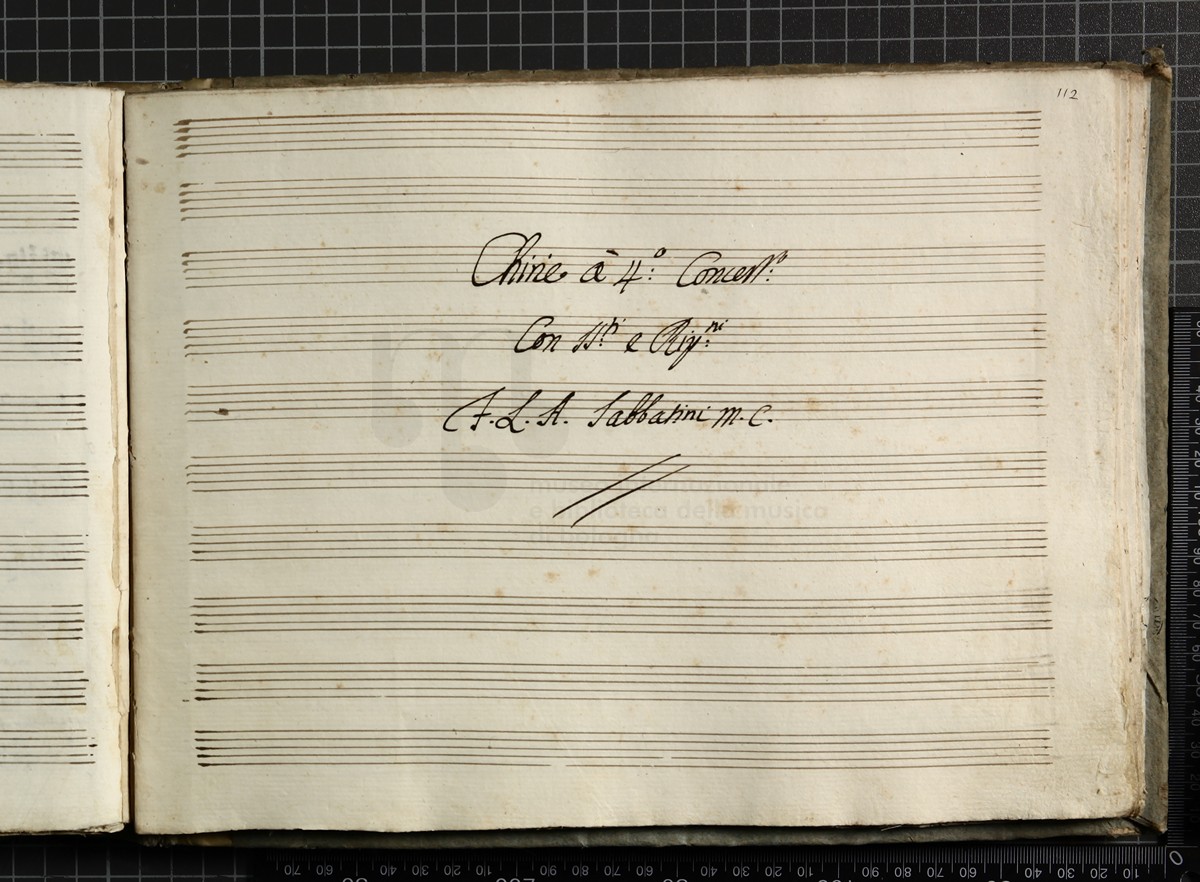 112
Chirie à 4.º Concert.º
Con VV.ni e Rip.ni
F. L. A. Sabbatini M. C.
museo internazionale
e biblioteca della musica
di bologna